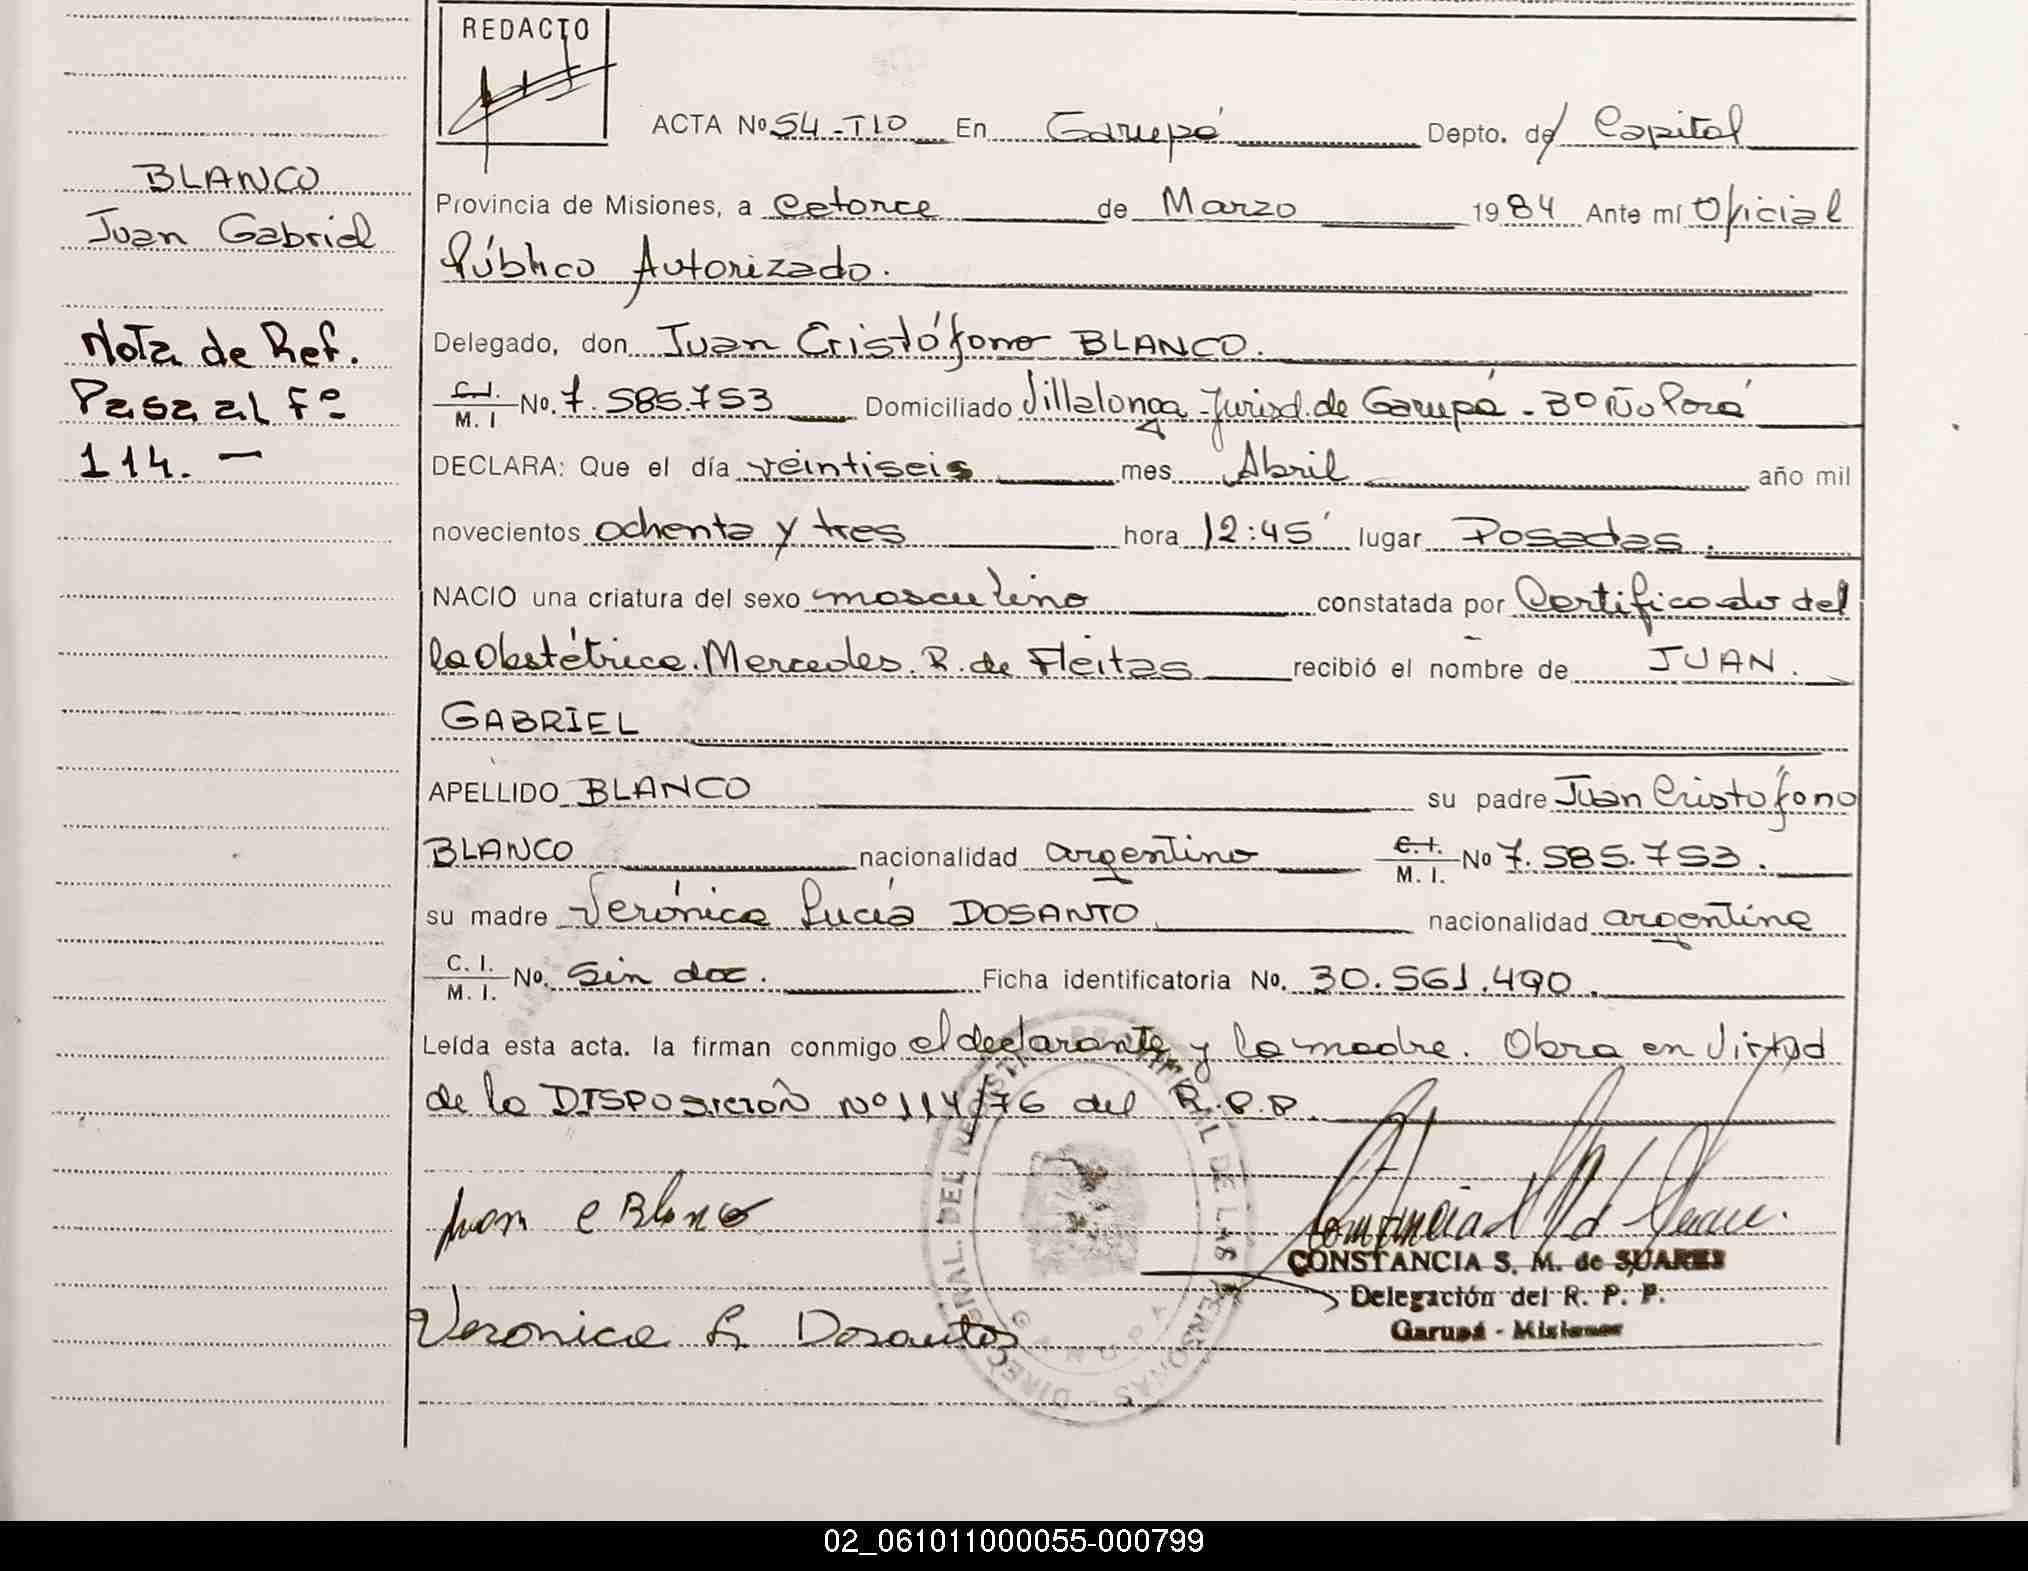 REDACTO
ACTA Nº 54-TIO En Garupá Depto. de Capital
BLANCO
Juan Gabriel
Provincia de Misiones, a catorce de Marzo 1984 Ante mí Oficial
Público Autorizado.
Nota de Ref.
Pasa al Fº
114. -
Delegado, don Juan Cristófono BLANCO.
C.I. M. I No. 7.585.753 Domiciliado Villalonga - Jurisd. de Garupá - Bº Ñu Porá
DECLARA: Que el día veintiseis mes Abril año mil
novecientos ochenta y tres hora 12:45' lugar Posadas.
NACIO una criatura del sexo masculino constatada por Certificado del
la Obstétrica. Mercedes. R. de Fleitas recibió el nombre de JUAN.
GABRIEL
APELLIDO BLANCO su padre Juan Cristófono
BLANCO nacionalidad argentino C.I. M. I. No 7.585.753.
su madre Verónica Lucía DOSANTO nacionalidad argentina
C. I. M. I. No. Sin doc. Ficha identificatoria No. 30.561.490.
Leída esta acta. la firman conmigo el declarante y la madre. Obra en virtud
de la DISPOSICIÓN Nº 114/76 del R.P.P.
Juan C Blanco
CONSTANCIA S. M. de SUARES
Delegación del R. P. P.
Garupá - Misiones
Veronica L. Dosantos
DIRECC PROVINCIAL DEL REGISTRO PROVINCIAL DE LAS PERSONAS
GARUPA
02_061011000055-000799